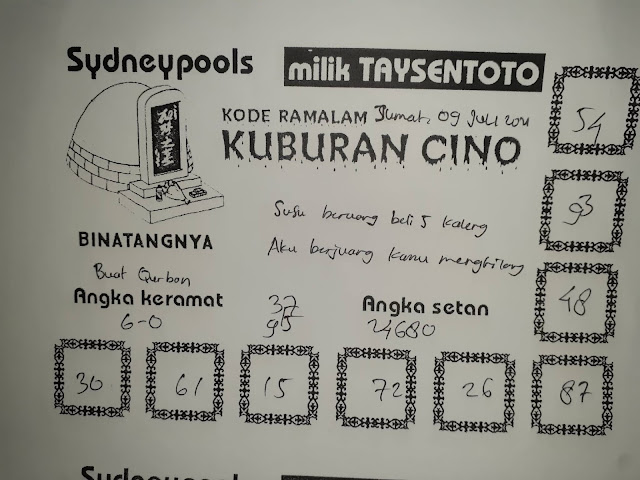 Sydneypools milik TAYSENTOTO
KODE RAMALAM Jumat, 09 Juli 2021
KUBURAN CINO
54
93
48
87
Susu beruang beli 5 kaleng
Aku berjuang kamu menghilang
BINATANGNYA
Buat Qurban
Angka keramat
6-0
37
95
Angka setan
24680
30 61 15 72 26
Sydneypools